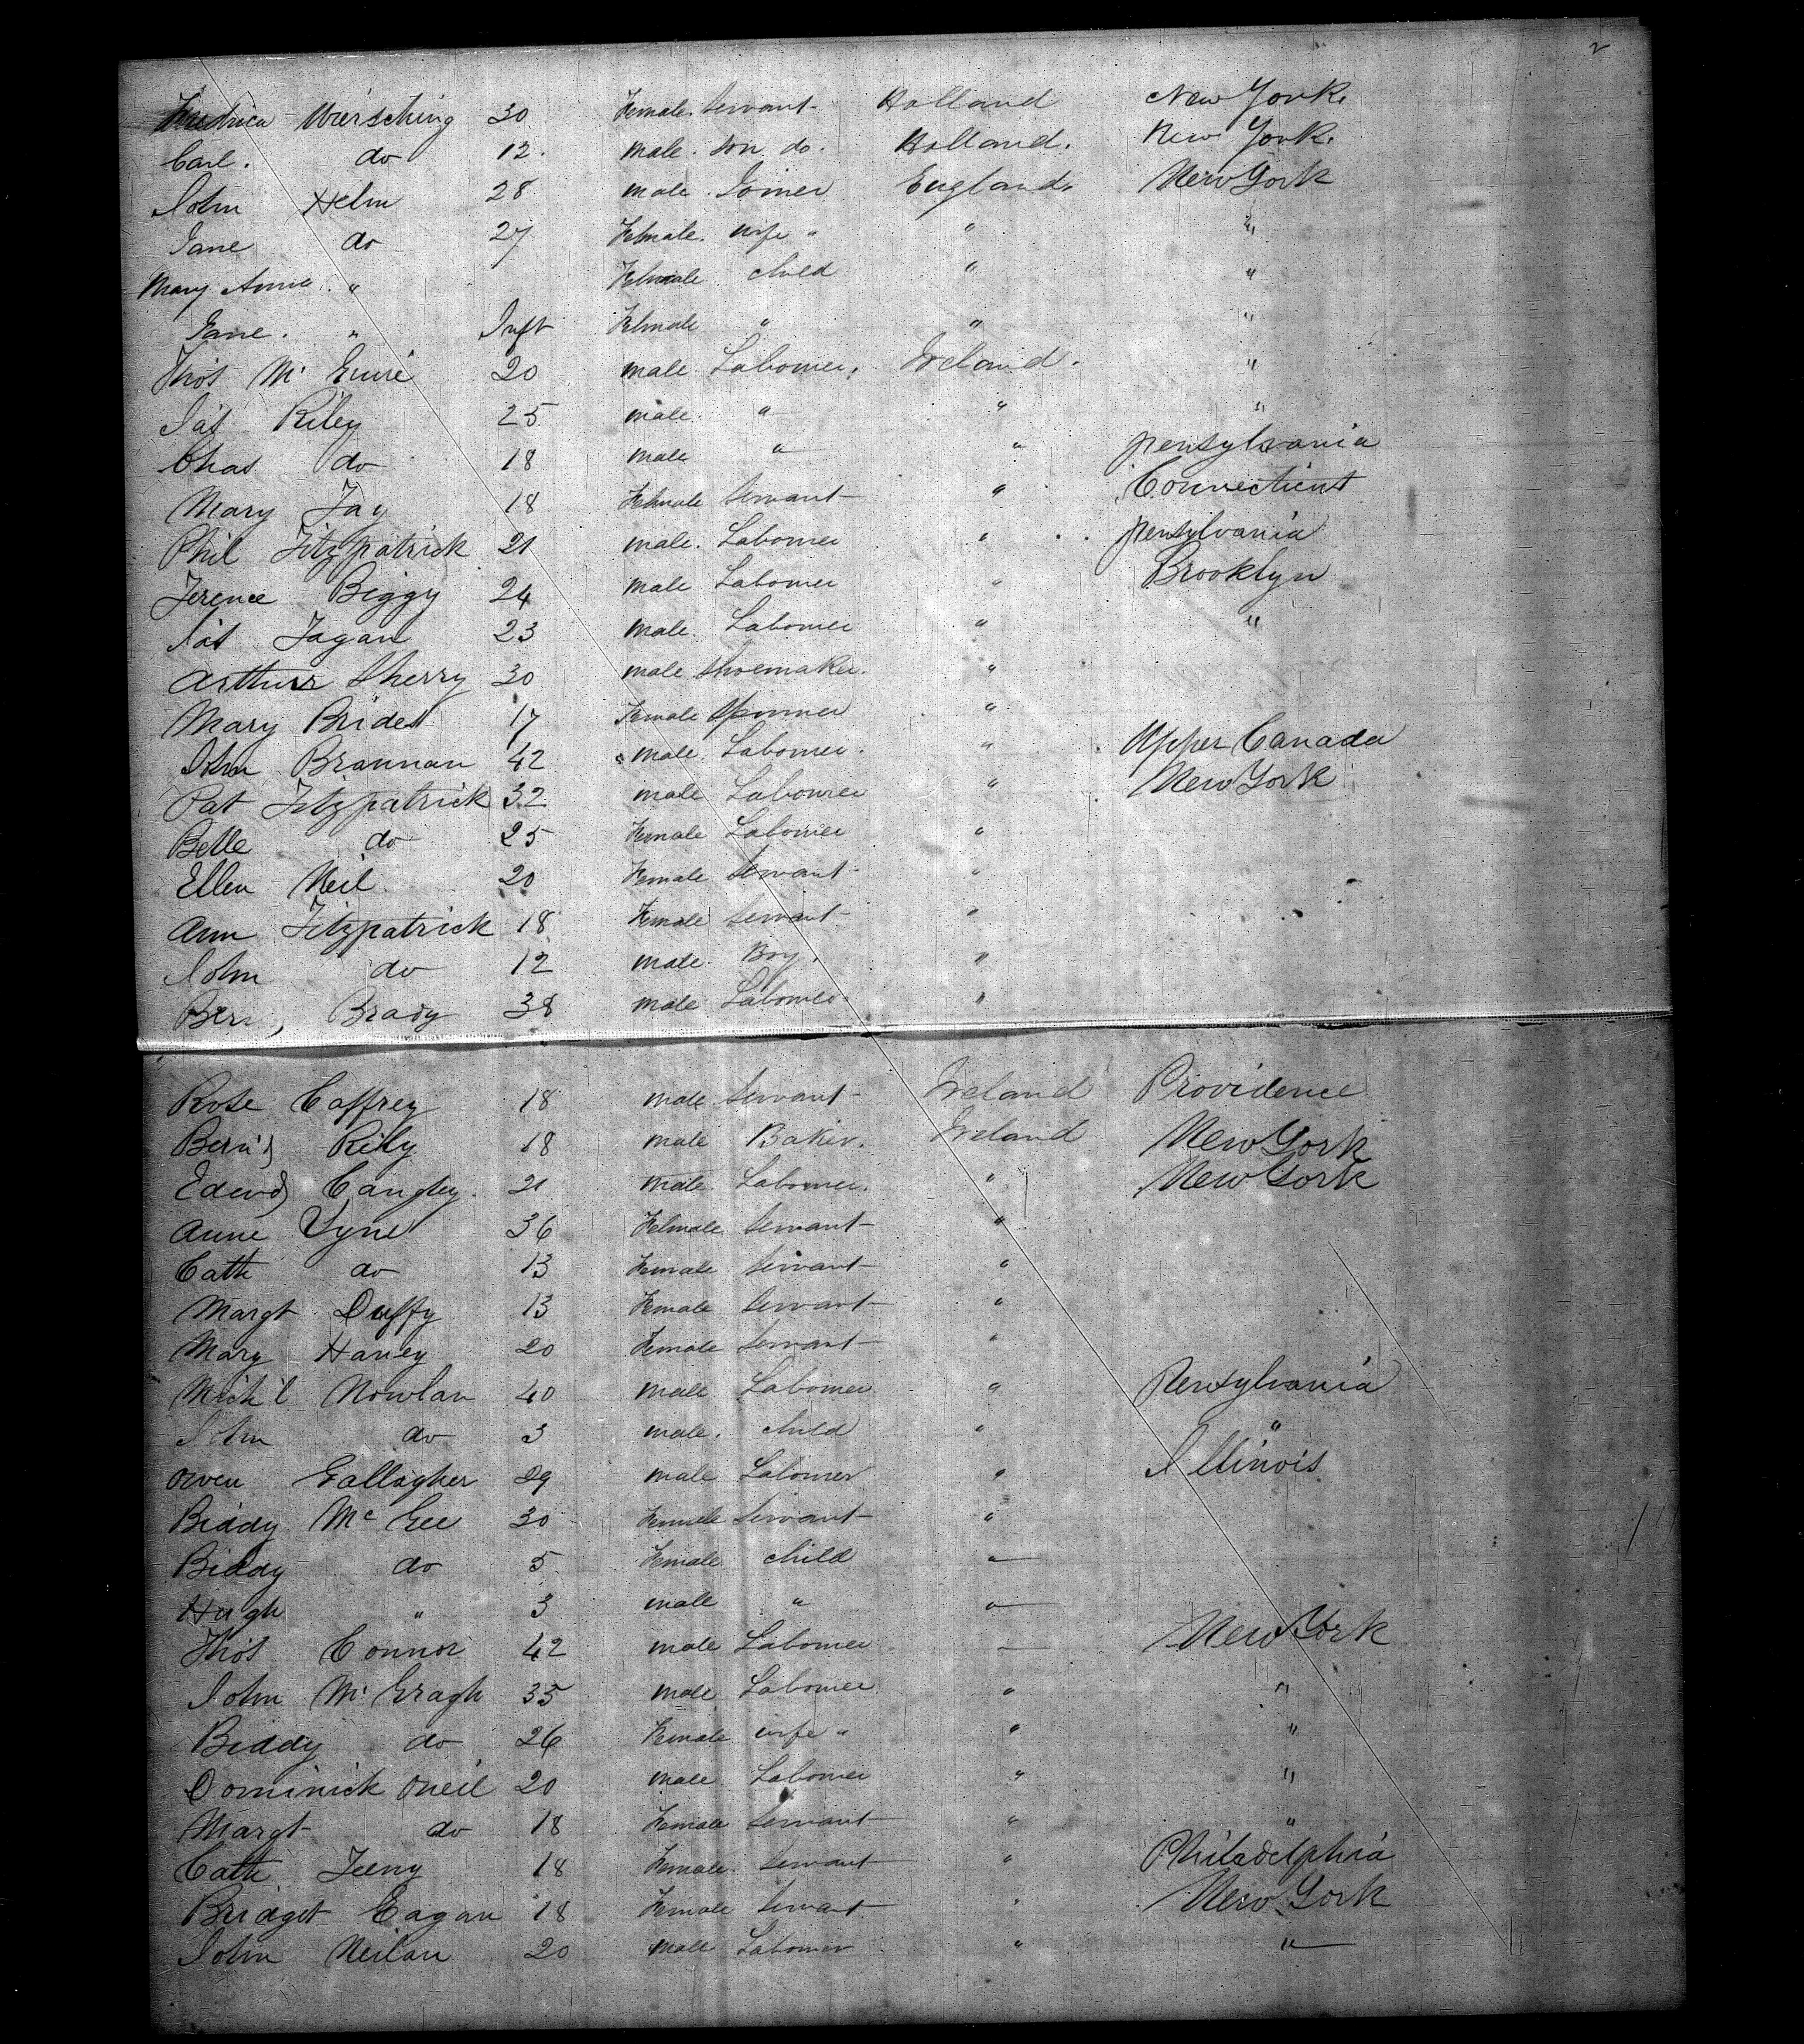 2
Fredrica Wiersching 30 Female. Servant Holland New York.
Carl. do 12. male. son do. Holland. New York.
John Helm 28 male. Joiner England. New York
Jane do 27 Female. wife " " "
Mary Anne. " Female child " "
Jane. " Inft Female " " "
Thos Mc Guire 20 male. Labourer, Ireland. "
Jas Riley 25 male. " " "
Chas do 18 male " " pensylvania
Mary Fay 18 Female Servant " Connecticut
Phil Fitzpatrick 21 male. Labourer " pensylvania
Terence Biggy 24 male Labourer " Brooklyn
Jas Fagan 23 male. Labourer " "
Arthur Sherry 30 male shoemaker. "
Mary Brides 17 Female Spinner "
John Brannan 42 male. Labourer. " Upper Canada
Pat Fitzpatrick 32 male Labourer " New York
Belle do 25 Female Labourer "
Ellen Neil 20 Female Servant "
Ann Fitzpatrick 18 Female servant "
John do 12 male Boy. "
Bern, Brady 38 male Labourer "
Rose Caffrey 18 male Servant Ireland Providence
Bernd Rily 18 male Baker. Ireland New York
Edewd Cangley. 21 male. Labourer. " New York
Anne Lyne 36 Female Servant "
Cath do 13 Female Servant "
Margt Duffy 13 Female Servant "
Mary Haney 20 Female Servant "
Mich'l Nowlan 40 male Labourer " Pensylvania
John do 3 male. child " "
Owen Gallagher 29 male Labourer " Illinois
Biddy Mc Gee 30 Female Servant "
Biddy do 5 Female child "
Hugh " 3 male " "
Thos Connor 42 male Labourer New York
John Mc Gragh 35 male Labourer " "
Biddy do 26 Female wife " " "
Dominick Oneil 20 male Labourer " "
Margt do 18 Female Servant " "
Cath Feeny 18 Female. Servant " Philadelphia
Bridget Eagan 18 Female Servant " New York
John Neilan 20 male Labourer " "